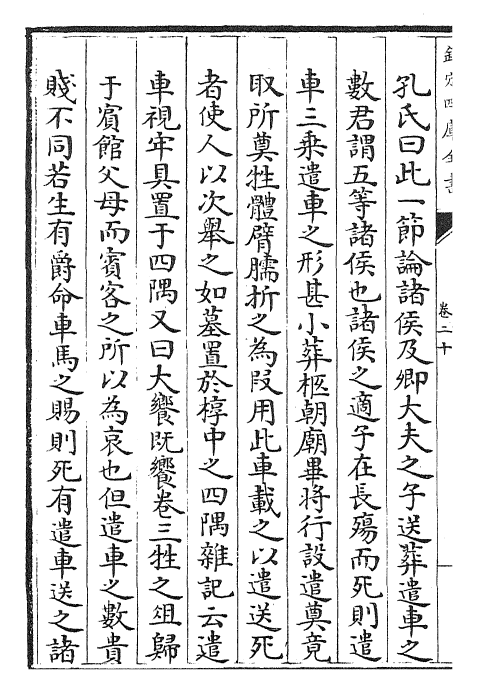 欽定四庫全書
卷二十
孔氏曰此一節論諸侯及卿大夫之子送葬遣車之
數君謂五等諸侯也諸侯之適子在長殤而死則遣
車三乗遣車之形甚小葬柩朝廟畢將行設遣奠竟
取所奠牲體臂臑折之為段用此車載之以遣送死
者使人以次舉之如墓置於椁中之四隅雜記云遣
車視牢具置于四隅又曰大饗既饗卷三牲之俎歸
于賔館父母而賔客之所以為哀也但遣車之數貴
賤不同若生有爵命車馬之賜則死有遣車送之諸